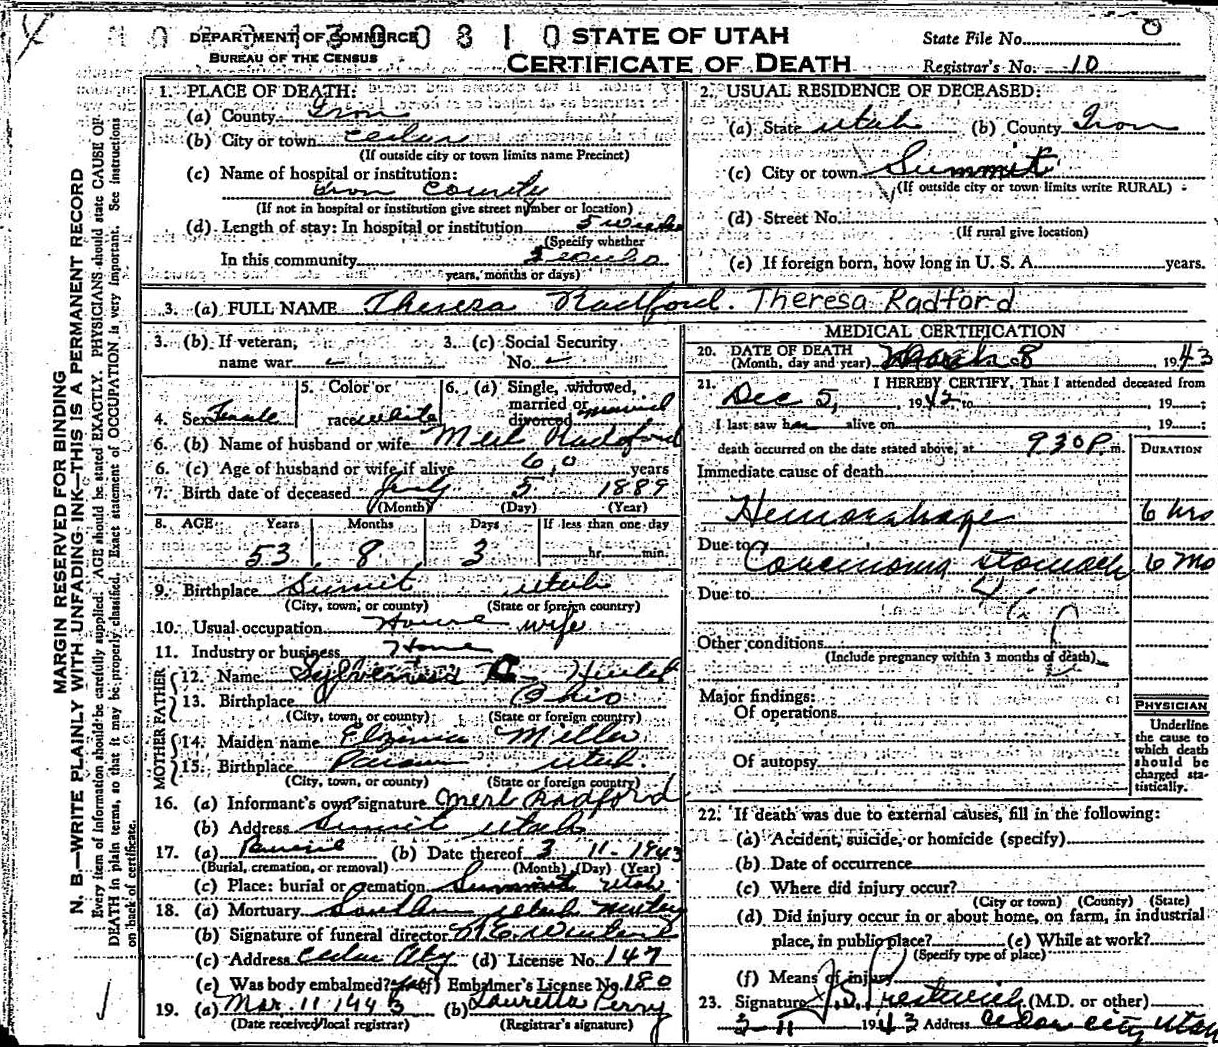 DEPARTMENT OF COMMERCE
BUREAU OF THE CENSUS
STATE OF UTAH
CERTIFICATE OF DEATH
State File No.
Registrar's No. 10
MARGIN RESERVED FOR BINDING
N. B.—WRITE PLAINLY WITH UNFADING INK—THIS IS A PERMANENT RECORD
Every item of information should be carefully supplied. AGE should be stated EXACTLY. PHYSICIANS should state CAUSE OF
DEATH in plain terms, so that it may be properly classified. Exact statement of OCCUPATION is very important. See instructions
on back of certificate.
1. PLACE OF DEATH:
(a) County Iron
(b) City or town Cedar
(If outside city or town limits name Precinct)
(c) Name of hospital or institution:
Iron County
(If not in hospital or institution give street number or location)
(d) Length of stay: In hospital or institution 5 weeks
(Specify whether
In this community 5 weeks
years, months or days)
2. USUAL RESIDENCE OF DECEASED:
(a) State Utah (b) County Iron
(c) City or town Summit
(If outside city or town limits write RURAL)
(d) Street No.
(If rural give location)
(e) If foreign born, how long in U. S. A. years.
3. (a) FULL NAME Theresa Radford. Theresa Radford
3. (b) If veteran, name war 3. (c) Social Security No.
4. Sex Female 5. Color or race white 6. (a) Single, widowed, married or divorced married
6. (b) Name of husband or wife Merl Radford
6. (c) Age of husband or wife if alive 60 years
7. Birth date of deceased July 5 1889
(Month) (Day) (Year)
8. AGE Years Months Days If less than one day
53 8 3 hr. min.
9. Birthplace Sumit Utah
(City, town, or county) (State or foreign country)
10. Usual occupation House wife
11. Industry or business Home
FATHER
12. Name
13. Birthplace Ohio
(City, town, or county) (State or foreign country)
MOTHER
14. Maiden name Miller
15. Birthplace Utah
(City, town, or county) (State or foreign country)
16. (a) Informant's own signature Merl Radford
(b) Address Sumit Utah
17. (a) (b) Date thereof 3 11 - 1943
(Burial, cremation, or removal) (Month) (Day) (Year)
(c) Place: burial or cremation Summit Utah
18. (a) Mortuary Southern Utah
(b) Signature of funeral director
(c) Address Cedar City (d) License No. 147
(e) Was body embalmed? (f) Embalmer's License No. 180
19. (a) Mar. 11 1943 (b) Lauretta Perry
(Date received local registrar) (Registrar's signature)
MEDICAL CERTIFICATION
20. DATE OF DEATH
(Month, day and year) March 8 1943
21. I HEREBY CERTIFY, That I attended deceased from
Dec 5, 1942, to 19
I last saw her alive on 19
death occurred on the date stated above, at 930P. m.
DURATION
Immediate cause of death
Hemorrhage 6 hrs
Due to Carcinoma stomach 6 Mo
Due to
Other conditions
(Include pregnancy within 3 months of death)
Major findings:
Of operations
Of autopsy
PHYSICIAN
Underline
the cause to
which death
should be
charged sta-
tistically.
22. If death was due to external causes, fill in the following:
(a) Accident, suicide, or homicide (specify)
(b) Date of occurrence
(c) Where did injury occur?
(City or town) (County) (State)
(d) Did injury occur in or about home, on farm, in industrial
place, in public place? (e) While at work?
(Specify type of place)
(f) Means of injury
23. Signature J. S. Prestwich (M.D. or other)
3-11 1943 Address Cedar City Utah